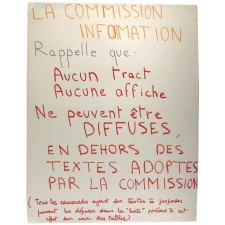 LA COMMISSION
INFORMATION
Rappelle que :
Aucun tract
Aucune affiche
Ne peuvent être
DIFFUSES,
EN DEHORS DES
TEXTES ADOPTES
PAR LA COMMISSION
( Tous les camarades ayant des textes à proposer
peuvent les déposer dans les "boites" prévues à cet
effet sur une des tables)